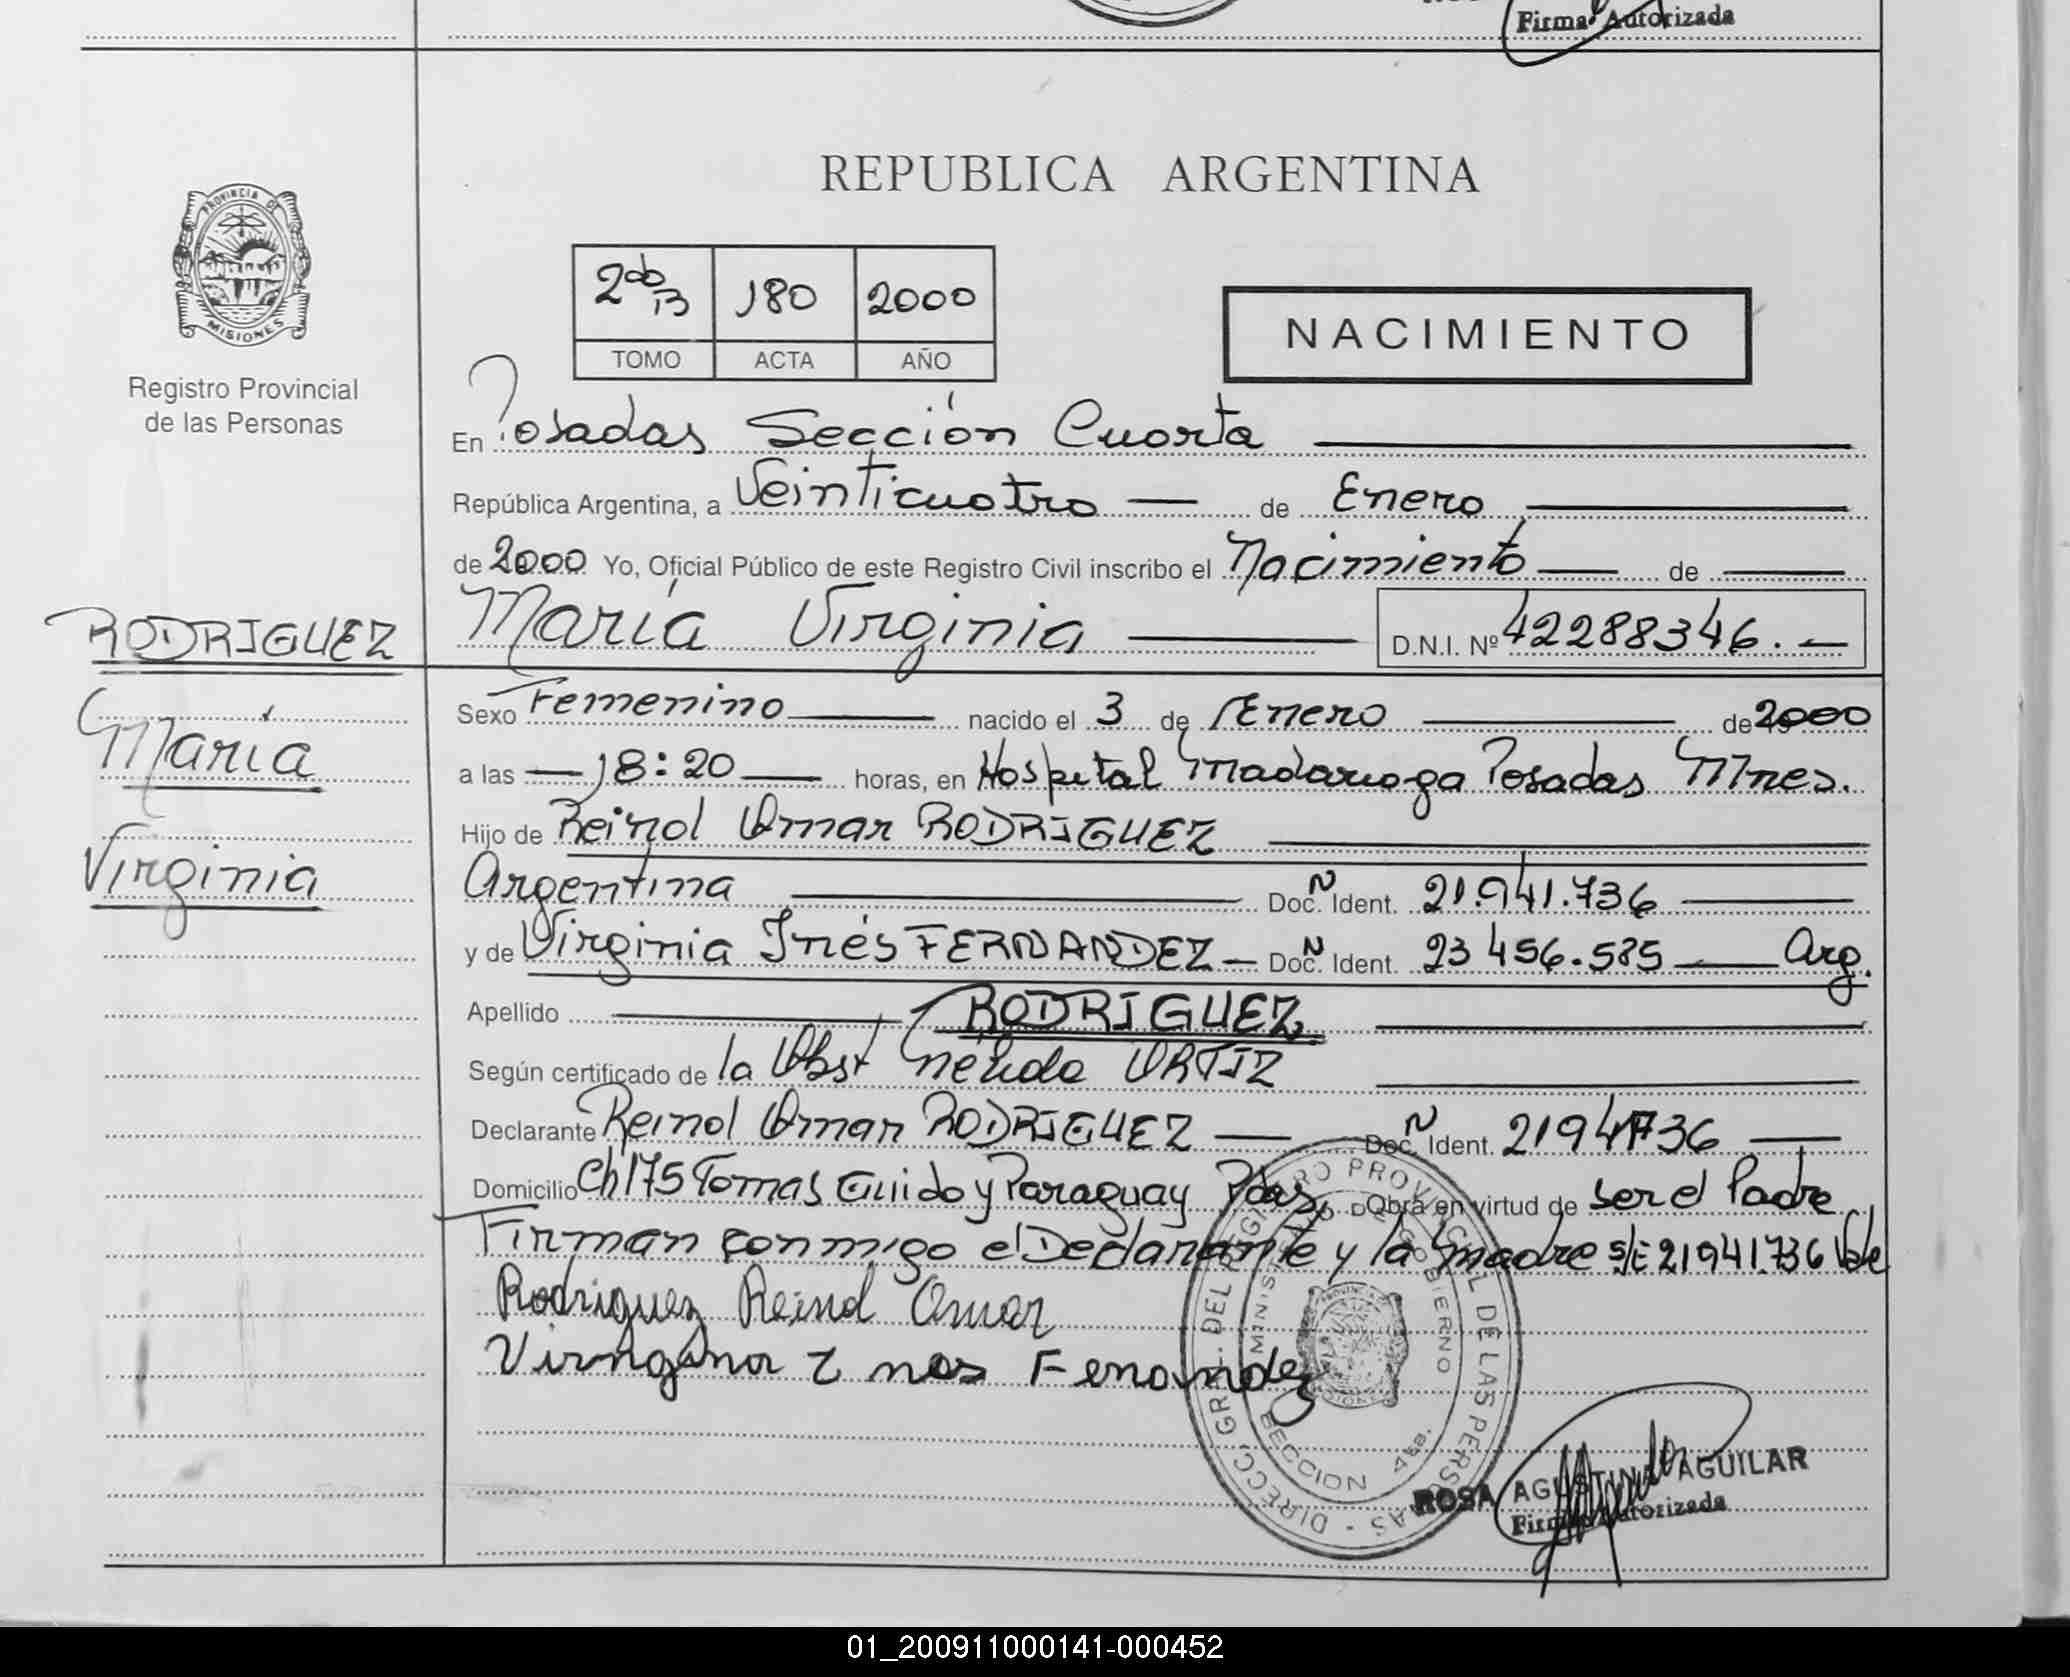 Firma Autorizada
PROVINCIA DE
MISIONES
Registro Provincial
de las Personas
REPUBLICA ARGENTINA
180 2000
TOMO ACTA AÑO
NACIMIENTO
En Posadas Sección Cuarta
República Argentina, a Veinticuatro de Enero
de 2000 Yo, Oficial Público de este Registro Civil inscribo el Nacimiento de
María Virginia D.N.I. Nº 42288346.
RODRIGUEZ
María
Virginia
Sexo Femenino nacido el 3 de Enero de 2000
a las 18:20 horas, en Hospital Madariaga Posadas Mnes.
Hijo de Reinol Omar RODRIGUEZ
Argentina Doc. N Ident. 21.941.736
y de Virginia Inés FERNANDEZ Doc. N Ident. 23 456.585 Arg.
Apellido RODRIGUEZ
Según certificado de la Obst Nélida ORTIZ
Declarante Reinol Omar RODRIGUEZ Doc. N Ident. 21941736
Domicilio Ch 175 Tomas Guido y Paraguay Pdas. Obra en virtud de ser el Padre
Firman conmigo el Declarante y la madre s/t 21941.736 Vale
Rodriguez Reinol Omar
DIRECC. GRAL. DEL REGISTRO PROVINCIAL DE LAS PERSONAS
MINISTERIO DE GOBIERNO
SECCION 4ta.
ROSA AGUSTINA AGUILAR
Firma Autorizada
01_200911000141-000452